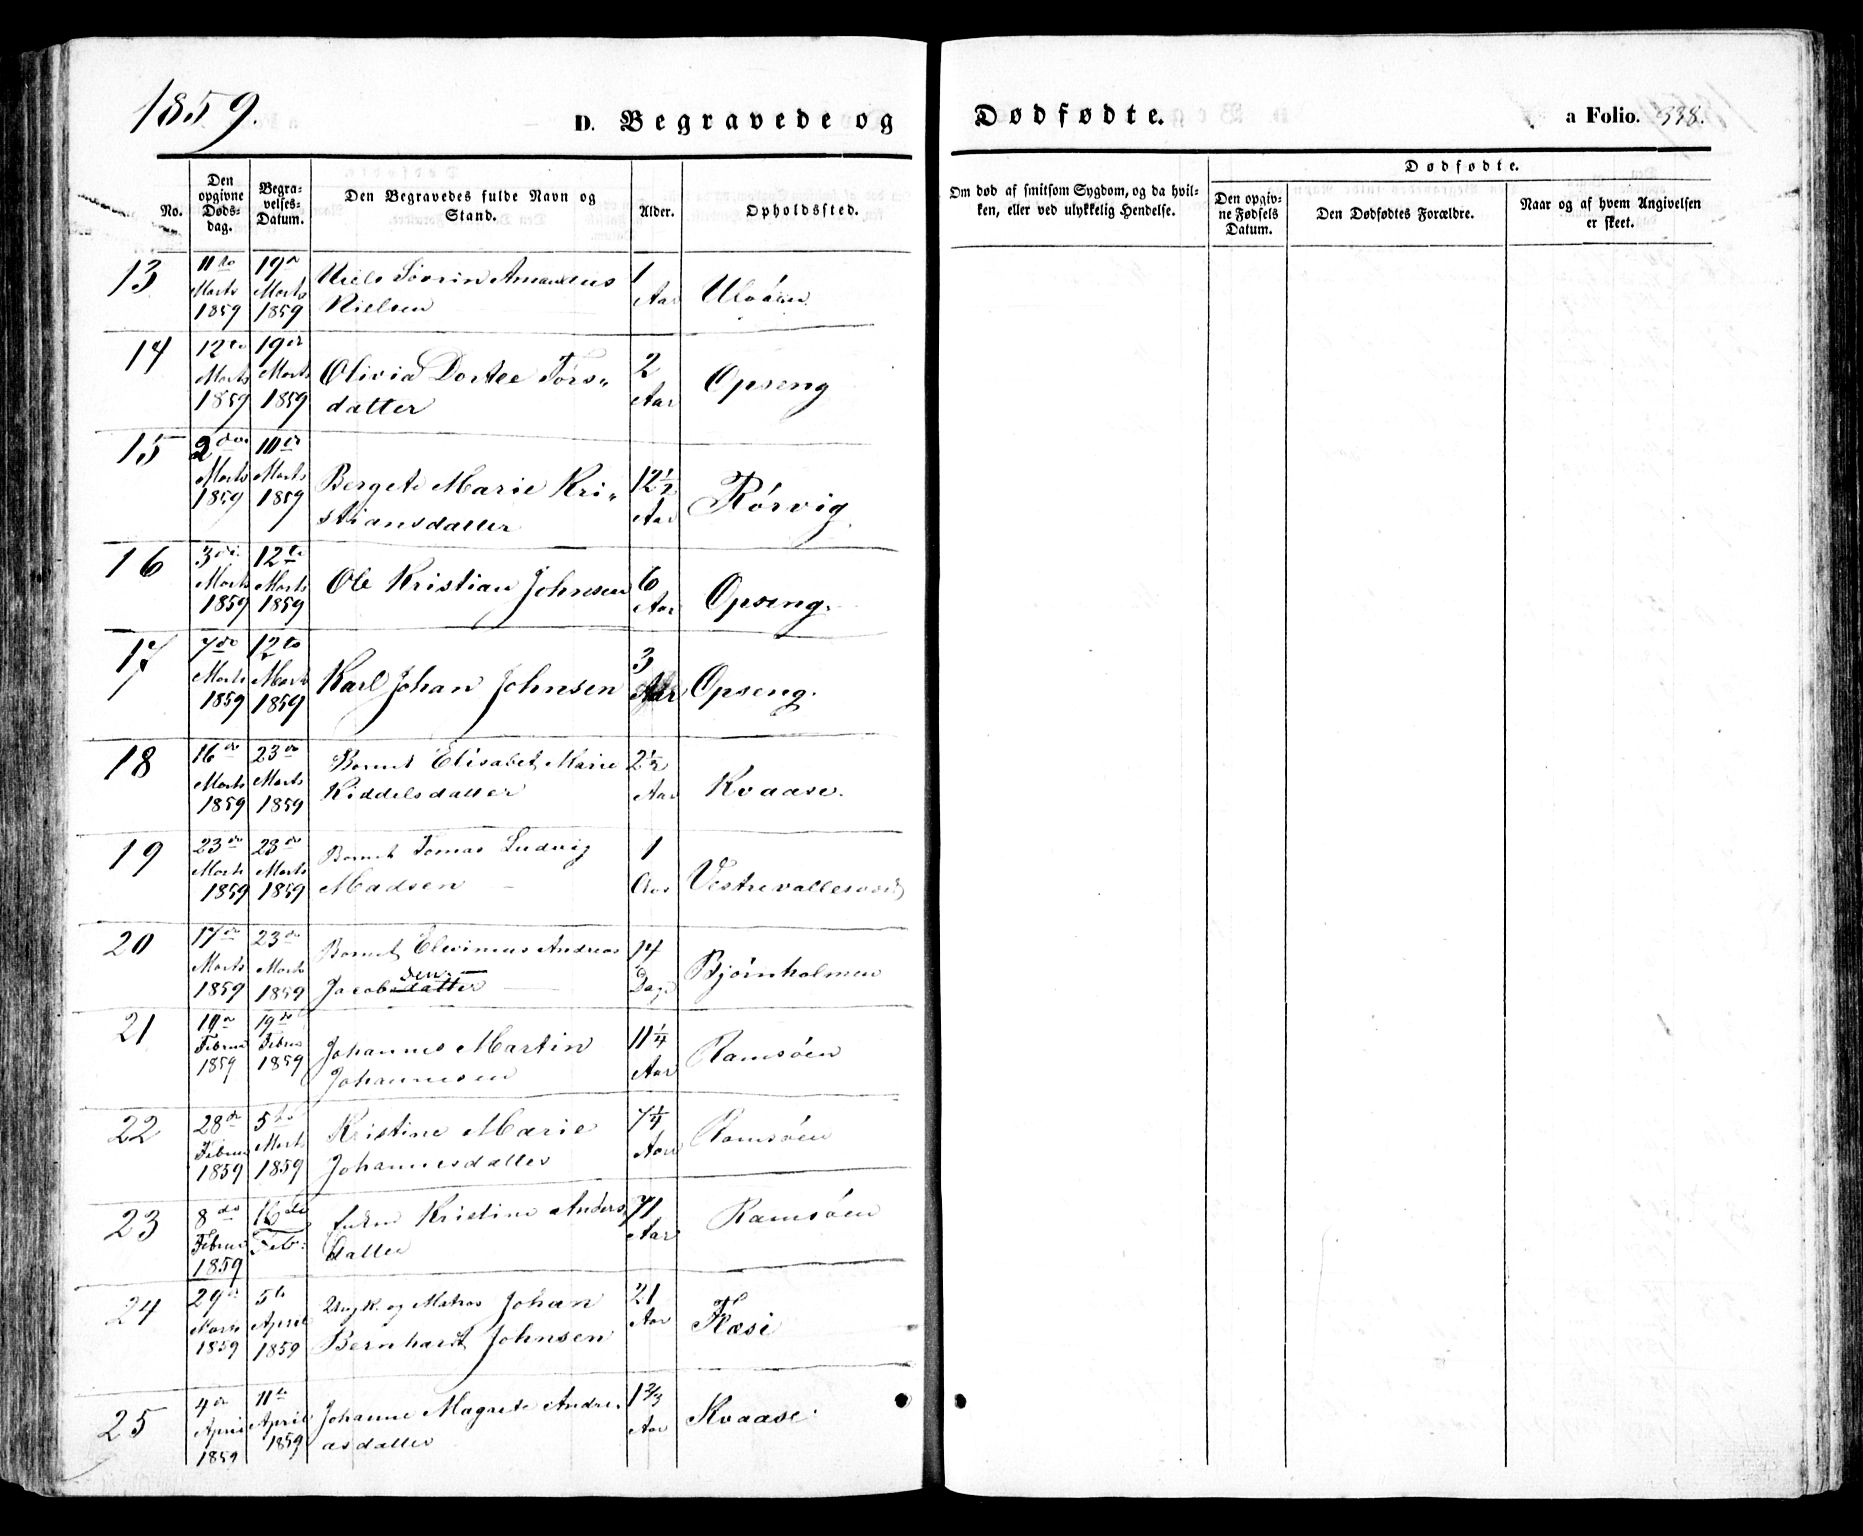 1859.
D. Begravede og Dødfødte. a Folio. 338.
No.
Den opgivne Døds-dag.
Begra-velses-Datum.
Den Begravedes fulde Navn og Stand.
Alder.
Opholdssted.
Om død af smitsom Sygdom, og da hvil-
ken, eller ved ulykkelig Hendelse.
Dødfødte.
Den opgiv-ne Fødsels Datum.
Den Dødfødtes Forældre.
Naar og af hvem Angivelsen
er skeet.
13 11te Marts 1859 19de Marts 1859 Niels Søvrin Amandus
Nielsen 1 Aar Ulvøen
14 12te Marts 1859 19de Marts 1859 Olivia Dortee Tors-
datter 2 Aar Opseng
15 2den Marts 1859 10de Marts 1859 Bergete Marie Kri-
stiansdatter 12½ Aar Rørvig
16 3die Marts 1859 12te Marts 1859 Ole Kristian Johnsen 6 Aar Opseng.
17 7de Marts 1859 12te Marts 1859 Karl Johan Johnsen 3 Aar Opseng.
18 16de Marts 1859 23de Marts 1859 Barnet Elisabet Marie
Kiddelsdatter 2½ Aar Kvaase.
19 23de Marts 1859 23de Marts 1859 Barnet Tomas Ludvig
Madsen 1 Aar
20 17de Marts 1859 23de Marts 1859 Barnet Elevinus Andreas
Jacobsdatter sen 14 Dage Bjørnholmen
21 Februar 1859 19de Februar 1859 Johannes Martin
Johannesen 11¼ Aar Ramsøen
22 28de Februar 1859 5te Marts 1859 Kristine Marie
Johannesdatter 7¼ Aar Ramsøen
23 8de Februar 1859 16de Feb: Kristine Anders
datter 71 Aar Ramsøen
24 29de Marts 1859 5te April 1859 Ungk. og Matros Johan
Bernhardt Johnsen 21 Aar
25 4de April 1859 11te April 1859 Johanne Magrete Andre-
asdatter 1⅔ Aar Kvaase.